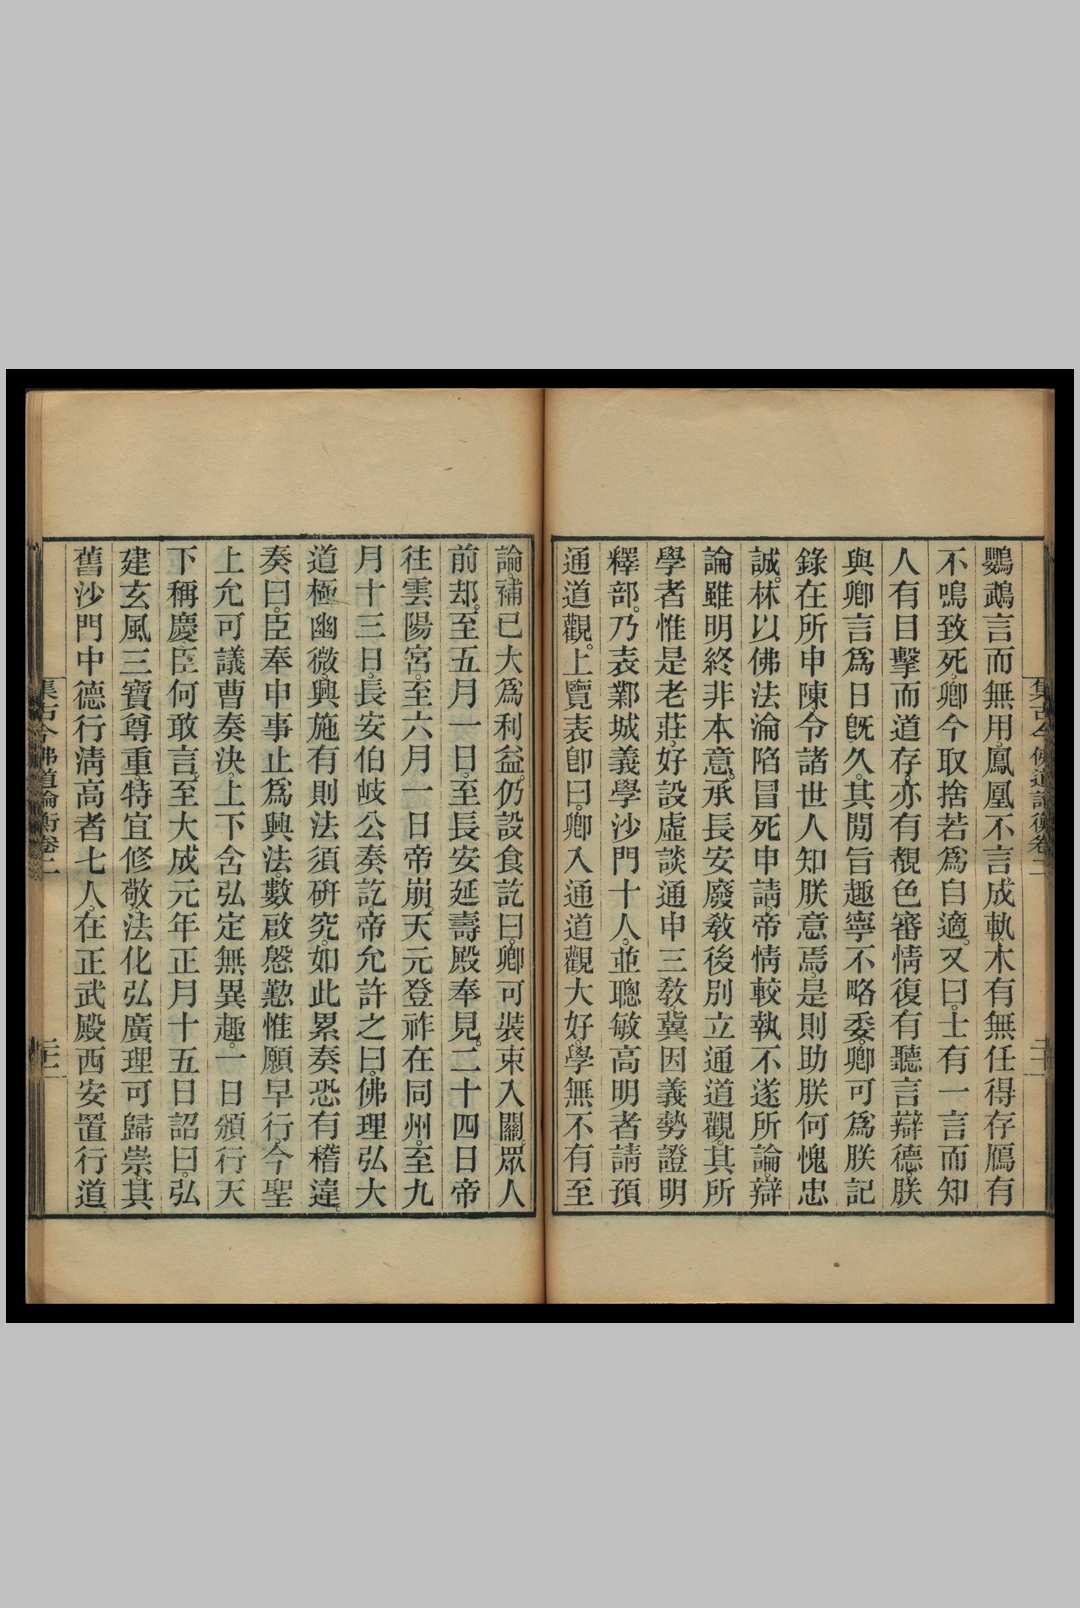 鸚鵡言而無用。鳳凰不言成軌。木有無任得存鴈有
不鳴致死。卿今取捨若爲自適。又曰。士有一言而知
人有目擊而道存。亦有覩色審情復有聽言辯德。朕
與卿言爲日既久。其閒旨趣寧不略委。卿可爲朕記
錄在所申陳。令諸世人知朕意焉。是則助朕何愧忠
誠。林以佛法淪陷冒死申請。帝情較執不遂所論。辯
論雖明終非本意。承長安廢敎後別立通道觀。其所
學者惟是老莊。好設虛談通申三敎冀因義勢證明
釋部。乃表鄴城義學沙門十人。並聰敏高明者請預
通道觀。上覽表卽曰。卿入通道觀大好。學無不有至
論補已大爲利益。仍設食訖曰。卿可裝束入關。眾人
前却。至五月一日。至長安延壽殿奉見。二十四日帝
往雲陽宮。至六月一日帝崩。天元登祚在同州。至九
月十三日。長安伯岐公奏訖帝允許之曰。佛理弘大
道極幽微。興施有則法須硏究。如此累奏恐有稽違。
奏曰。臣奉申事止爲興法。數啟慇懃惟願早行。今聖
上允可議曹奏決。上下含弘定無異趣。一日頒行天
下稱慶。臣何敢言。至大成元年正月十五日詔曰。弘
建玄風三寶尊重。特宜修敬。法化弘廣理可歸崇。其
舊沙門中德行淸高者七人。在正武殿西安置行道。
集古今佛道論衡卷二